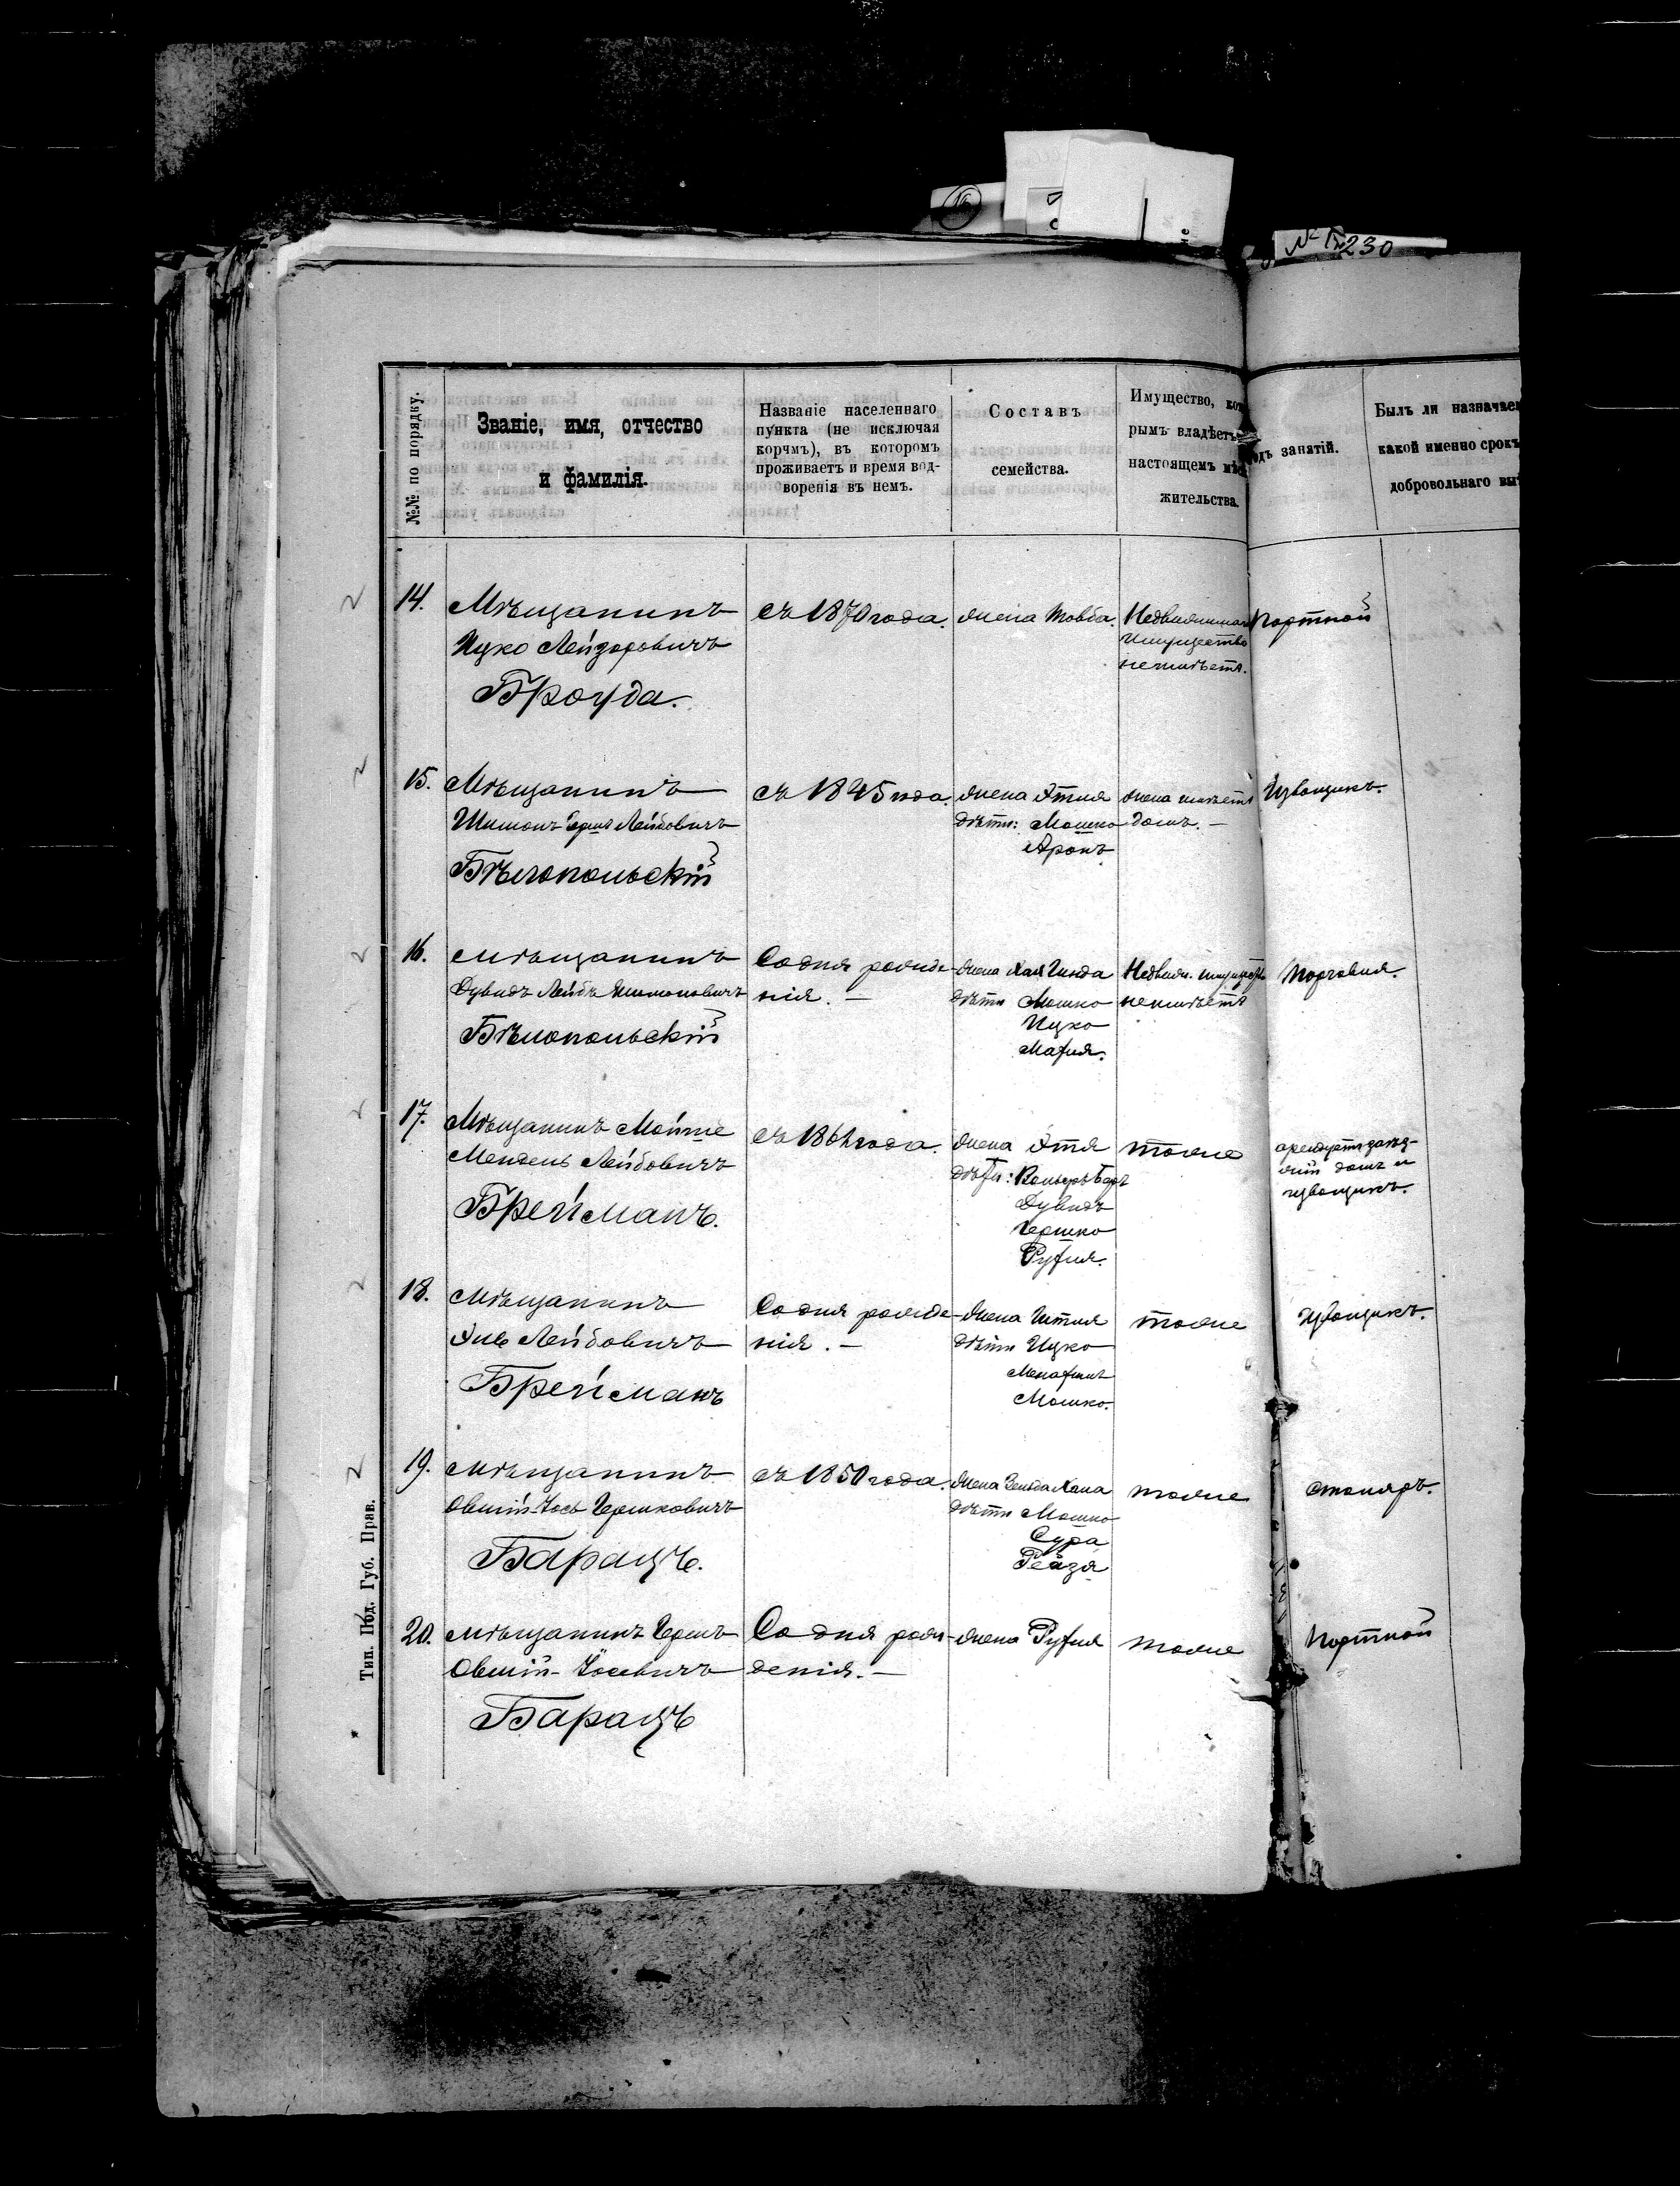 № 230
№№ по порядку.
Званіе, имя, отчество
и фамилія.
Названіе населеннаго
пункта (не исключая
корчмъ), въ которомъ
проживаетъ и время вод-
воренія въ немъ.
Составъ
семейства.
Имущество, ко
рымъ владѣетъ
настоящемъ мѣс
жительства.
одъ занятій.
Былъ ли назначае
какой именно срокъ
добровольнаго вы
14.
Мѣщанинъ
Ицко Лейзоровичъ
Броуда.
съ 1870 года.
жена Товба.
Недвижимаго
имущества
неимѣетъ.
Портной
15.
Мѣщанинъ
Шимонъ Гершъ Лейбовичъ
Бѣлопольскій
съ 1845 года.
жена Этля
дѣти: Мошко
Аронъ
жена имѣетъ
домъ.—
Извощикъ.
16.
Мѣщанинъ
Дувидъ Лейбъ Шимоновичъ
Бѣлопольскій
Со дня рожде-
нія.—
жена Хая Гинда
дѣти Мошко
Ицко
Махля.
Недвиж. имущество
неимѣетъ
Торговля.
17.
Мѣщанинъ Мойше
Мендель Лейбовичъ
Брейманъ.
съ 186 года.
жена Этя
дѣти: Беръ
Дувидъ
Гершко
Рухля.
тоже
арендуетъ заѣз-
жій домъ и
извощикъ.
18.
Мѣщанинъ
Эль Лейбовичъ
Брейманъ
Со дня рожде-
нія.—
жена Гитля
дѣти Ицко
Менахимъ
Мошко.
тоже
Извощикъ.
19.
Мѣщанинъ
Овшій-Іось Гершковичъ
Барацъ.
съ 1850 года.
жена Зельда Хана
дѣти Мошко
Сура
Рейзя
тоже
столяръ.
20.
Мѣщанинъ Гершъ
Овшій-Іосевичъ
Барацъ
Со дня рож-
денія.—
жена Рухля
тоже
Портной
Тип. Под. Губ. Прав.